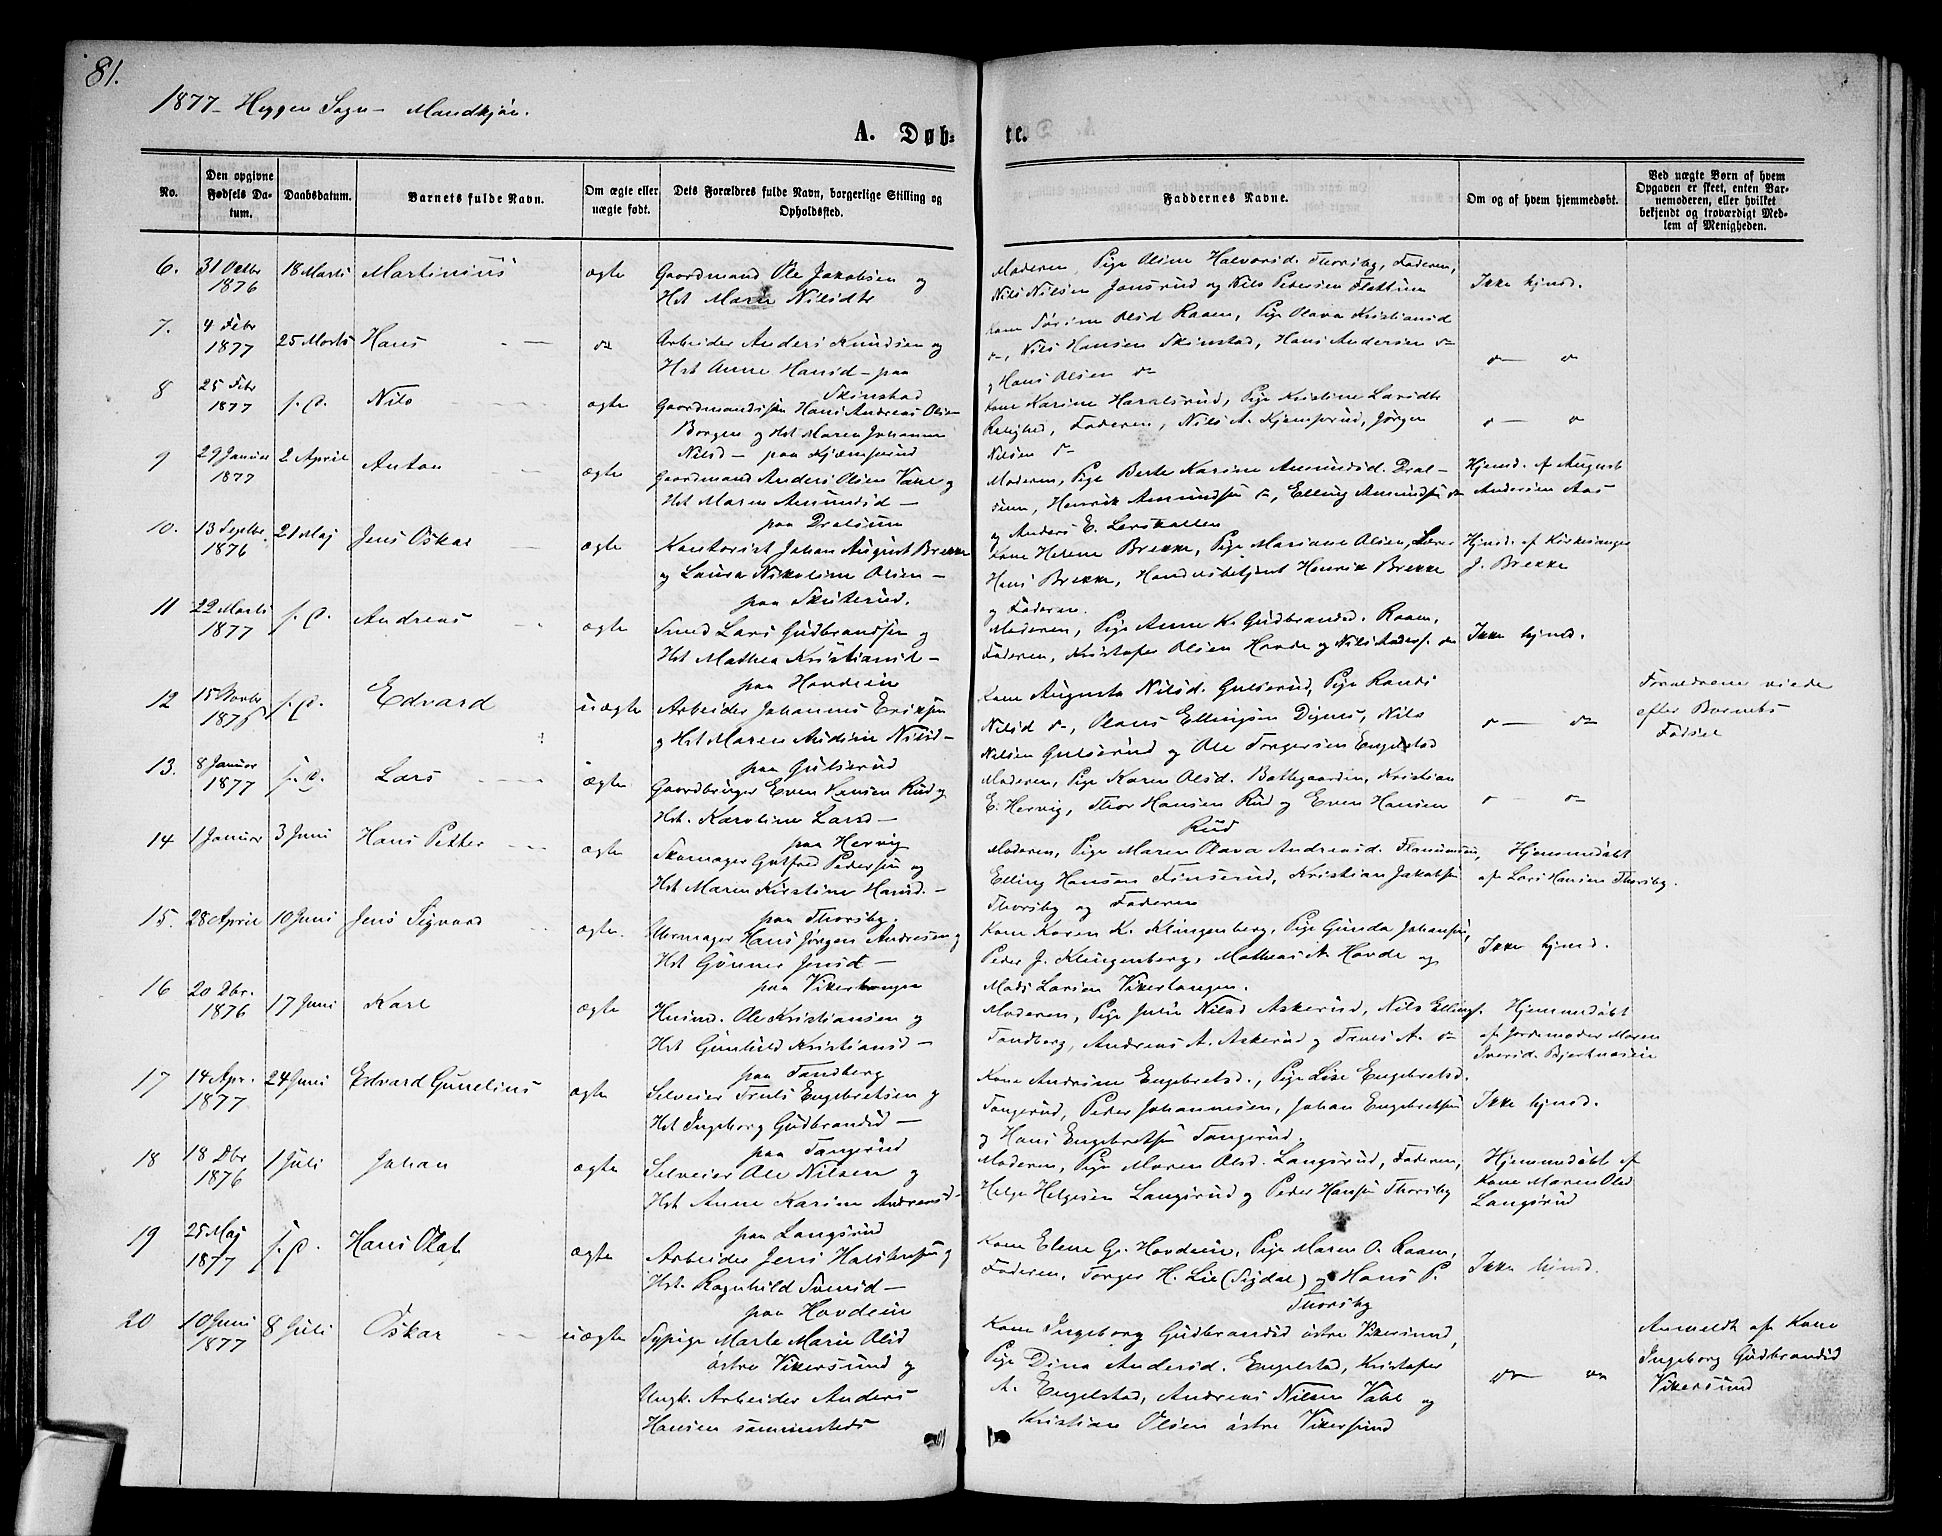 81.
1877 - Heggen Sogn - Mandkjøn.
A. Døb-
te.
No.
Den opgivne Fødsels Da-tum.
Daabsdatum.
Barnets fulde Navn.
Om ægte eller uægte født.
Dets Forældres fulde Navn, borgerlige Stilling og Opholdssted.
Faddernes Navne.
Om og af hvem hjemmedøbt.
Ved uægte Børn af hvem Opgaven er skeet, enten Bar-nemoderen, eller hvilket bekjendt og troværdigt Med-lem af Menigheden.
6. 31 Octbr 1876 18 Marts Martinius ægte
Gaardmand Ole Jakobsen og
Hst Maren Nilsdtr
Moderen, Pige Oline Halvorsd. Thorsby, Faderen,
Nils Nilsen Jonsrud og Nils Pedersen Flattum
Ikke hjmd.
7. 4 Febr 1877 25 Marts Hans
Arbeider Anders Knudsen og
Hst Anne Hansd - paa
Skinstad
Kone Sørine Olsd Raaen, Pige Olava Kristiansd
Nils Hansen Skinstad, Hans Andersen
og Hans Olsen
8 25 Febr 1877 s. D. Nils ægte
Gaardmandssøn Hans Andreas Olsen
Borgen og Hst Maren Johanne
Nilsd - paa Kjemperud
Kone Karine Haralsrud, Pige Kristine Larsdtr
Faderen, Nils A. Kjemperud, Jørgen
Nilsen
9 29 Januar 1877 2 April Anton ægte
Gaardmand Anders Olsen Vahl og
Hst Maren Amundsd -
paa Dralsum
Moderen, Pige Berte Karine Amundsd. Dral-
sum, Henrik Amundsen, Elling Amundsen
og Anders E. Lerskallen
Hjemd. af August
Andersen Aas
10. 13 Septbr 1876 21 Maj Jens Oskar ægte
Kontorist Johan August Brekke
og Laura Nikoline Olsen -
paa Skuterud.
Kone Helene Brekke, Pige Mariane Olsen, Lærer
Hans Brekke, Handelsbetjent Henrik Brekke
og Faderen.
Hjmd. af Kirkesanger
J. Brekke
11 22 Marts 1877 s. D. Andreas ægte
Smed Lars Gudbrandsen og
Hst Mathea Kristiansd -
paa Hovdein
Moderen, Pige Anne K. Gudbrandsd. Raaen,
Faderen, Kristofer Olsen Hovde og Nils Anders.
Ikke hjmd.
12 15 Novbr 1876 s. D. Edvard uægte
Arbeider Johannes Eriksen
og Hst Maren Andrine Nilsd -
paa Gulserud
Kone Augusta Nilsd. Gulserud, Pige Randi
Nilsd, Olaus Ellingsen Dignes, Nils
Nilsen Gulserud og Ole Torgersen Engelstad
Forældrene viede
efter Barnets
Fødsel
13. 8 Januar 1877 s. D. Lars ægte
Gaardbruger Even Hansen Rud og
Hst. Karoline Larsd -
paa Hervig
Moderen, Pige Karen Olsd. Bakkegaarden, Kristian
E. Hervig, Thor Hansen Rud og Even Hansen
Rud
14 1 Januar 3 Juni Hans Petter ægte
Skomager Gutfred Pedersen og
Hst Maren Kirstine Hansd. -
paa Thorsby.
Moderen, Pige Maren Olava Andreasd.
Elling Hansen Finserud, Kristian Jakobsen
Thorsby og Faderen
Hjemmedøbt
af Lars Hansen Thorsby.
15. 28 April 10 Juni Jens Sigvard ægte.
Urmager Hans Jørgen Andresen og
Hst Gunner Jensd -
paa Vikertangen
Kone Karen K. Klingenberg, Pige Gunda Johansen,
Peder J. Klingenberg, Mathias A. Hovde og
Mads Larsen Vikertangen.
Ikke hjmd.
16 20 Dbr. 1876 17 Juni Karl ægte
Husmd. Ole Kristiansen og
Hst Gunhild Kristiansd -
paa Tandberg
Moderen, Pige Julie Nilsd Askerud, Nils Ellings.
Tandberg, Andreas A. Askerud og Truls A.
Hjemmedøbt
af Jordemoder Maren
Iversd. Bjertnæsein
17 14 Apr. 1877 24 Juni Edvard Gunelius ægte
Selveier Truls Engebretsen og
Hst Ingeborg Gudbrandsd -
paa Tangerud
Kone Andrine Engebretsd., Pige Lise Engebretsd.
Tangerud, Peder Johannesen, Johan Engebretsen
og Hans Engebretsen Tangerud.
Ikke hjmd.
18 18 Dbr 1876 1 Juli Johan ægte
Selveier Ole Nilsen og
Hst Anne Karine Andreasd -
paa Langsrud
Moderen, Pige Maren Olsd. Langsrud, Faderen,
Helge Helgesen Langsrud og Peder Hansen Thorsby
Hjemmedøbt af
Kone Maren Olsd
Langsrud
19 25 Maj 1877 s. D. Hans Olaf ægte
Arbeider Jens Halstensen og
Hst. Ragnhild Svensd -
paa Hovdein
Kone Elene G. Hovdein, Pige Maren O. Raaen,
Faderen, Torger H. Lie (Sigdal) og Hans P.
Thorsby
Ikke hjmd.
20 10 Juni 1877 8 Juli Oskar uægte
Sypige Marte Marie Olsd
østre Vikersund og
Ungk. Arbeider Anders
Hansen sammesteds
Kone Ingeborg Gudbrandsd østre Vikersund,
Pige Dina Andersd. Engelstad, Kristofer
A. Engelstad, Andreas Nilsen Vahl og
Kristian Olsen østre Vikersund
Anmeldt af Kone
Ingeborg Gudbrandsd
Vikersund